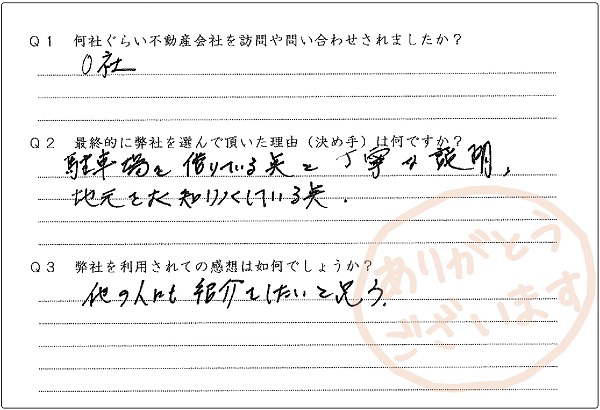 Q1 何社ぐらい不動産会社を訪問や問い合わせされましたか?
0社
Q2 最終的に弊社を選んで頂いた理由(決め手)は何ですか?
駐車場を借りている点と丁寧な説明、
地元を大知りつくしている点.
Q3 弊社を利用されての感想は如何でしょうか?
他の人にも紹介をしたいと思う.
ありがとう
ございます